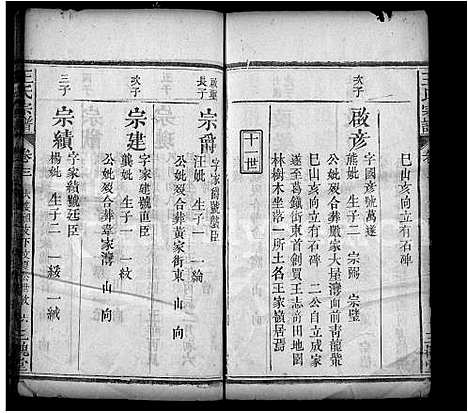 巳山亥向立有石碑
次子
啟彥
字國彥號萬遂
熊妣 生子二 宗爵 宗璧
公妣砂合葬嚴家大屋灣面前青龍嘴
巳山亥向立有石碑 二公自立成家
遂至葛鎮街東首創買王志奇田地園
林樹木坐落一所土名王家嶺居焉
十一世
啟璽長子
宗爵
字家爵號盤臣
汪妣 生子一 一綸
公妣砂合葬黃家街東 山 向
次子
宗建
字家建號直臣
龔妣 生子一 一紋
公妣砂合葬章家灣 山 向
三子
宗績
字家績號廷臣
楊妣 生子二 一綬 一絨
王氏宗譜
卷三
三槐堂